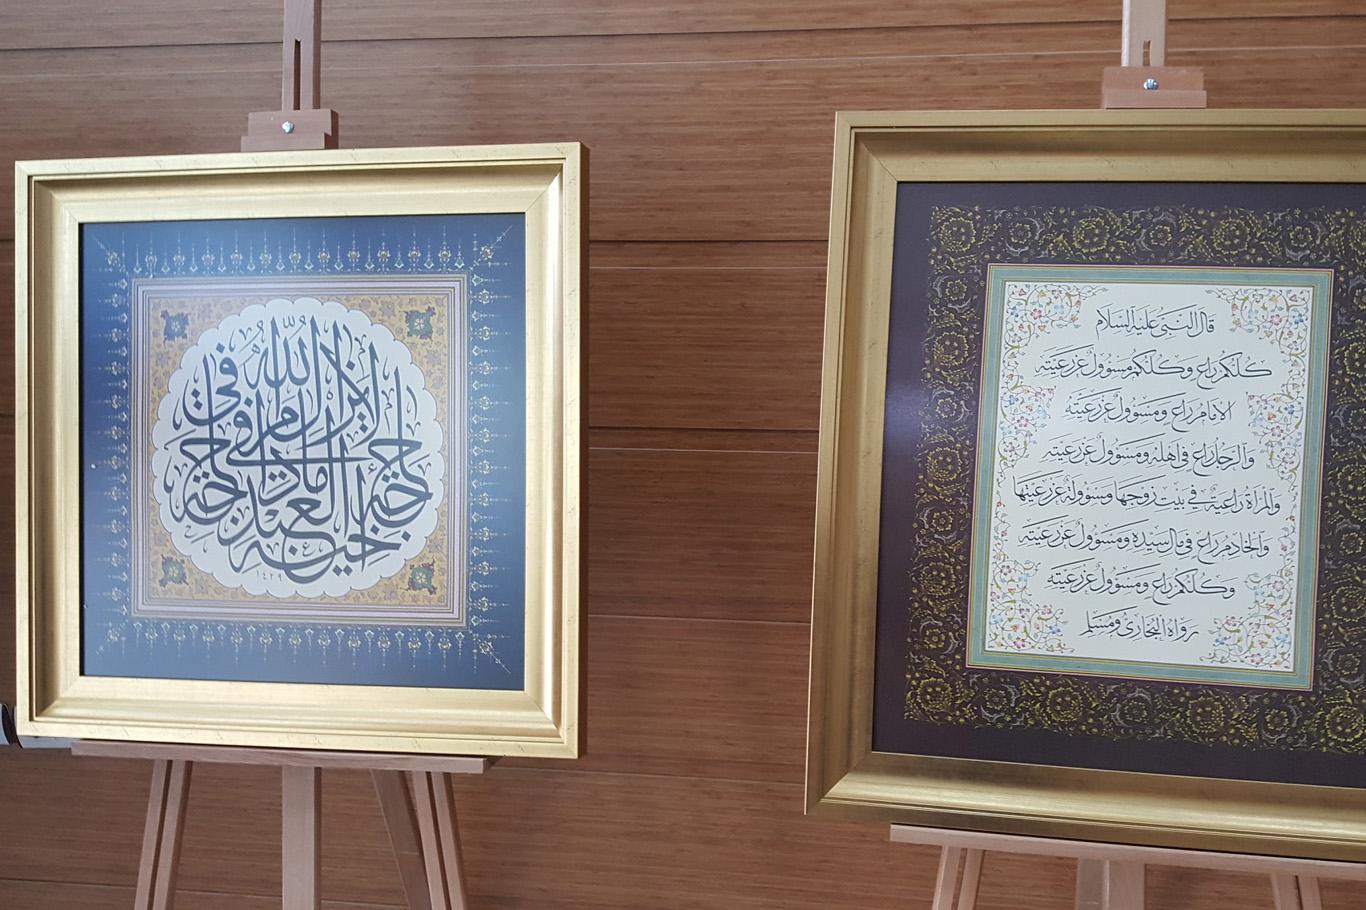 لا يزال الله في حاجة العبد ما دام في حاجة أخيه
١٤٢٩
قال النبي عليه السلام
كلكم راع وكلكم مسؤول عن رعيته
الامام راع ومسؤول عن رعيته
والرجل راع في اهله ومسؤول عن رعيته
والمرأة راعية في بيت زوجها ومسؤولة عن رعيتها
والخادم راع في مال سيده ومسؤول عن رعيته
وكلكم راع ومسؤول عن رعيته
رواه البخاري ومسلم